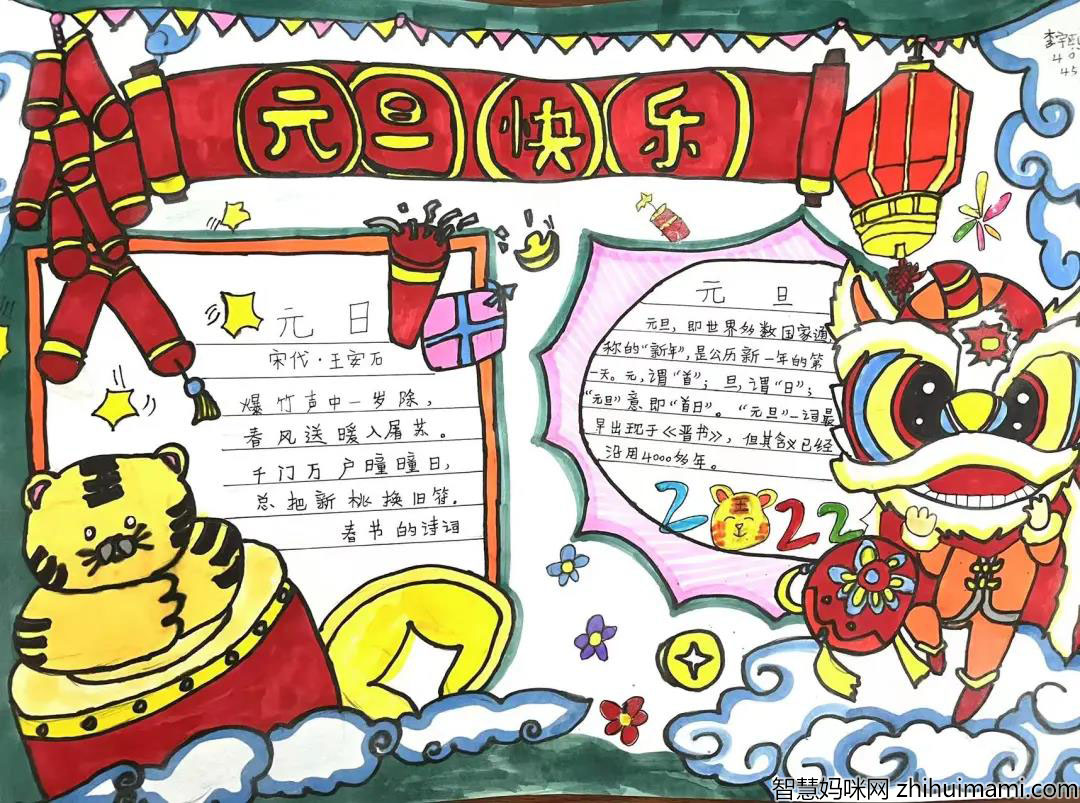 元旦快乐
元日
宋代·王安石
爆竹声中一岁除，
春风送暖入屠苏。
千门万户曈曈日，
总把新桃换旧符.
春书的诗词
元旦
元旦，即世界多数国家通
称的“新年”，是公历新一年的第
一天。元，谓“首”；旦，谓“日”；
“元旦”意即“首日”。“元旦”一词最
早出现于《晋书》，但其含义已经
沿用4000多年。
2022
智慧妈咪网 zhihuimami.com